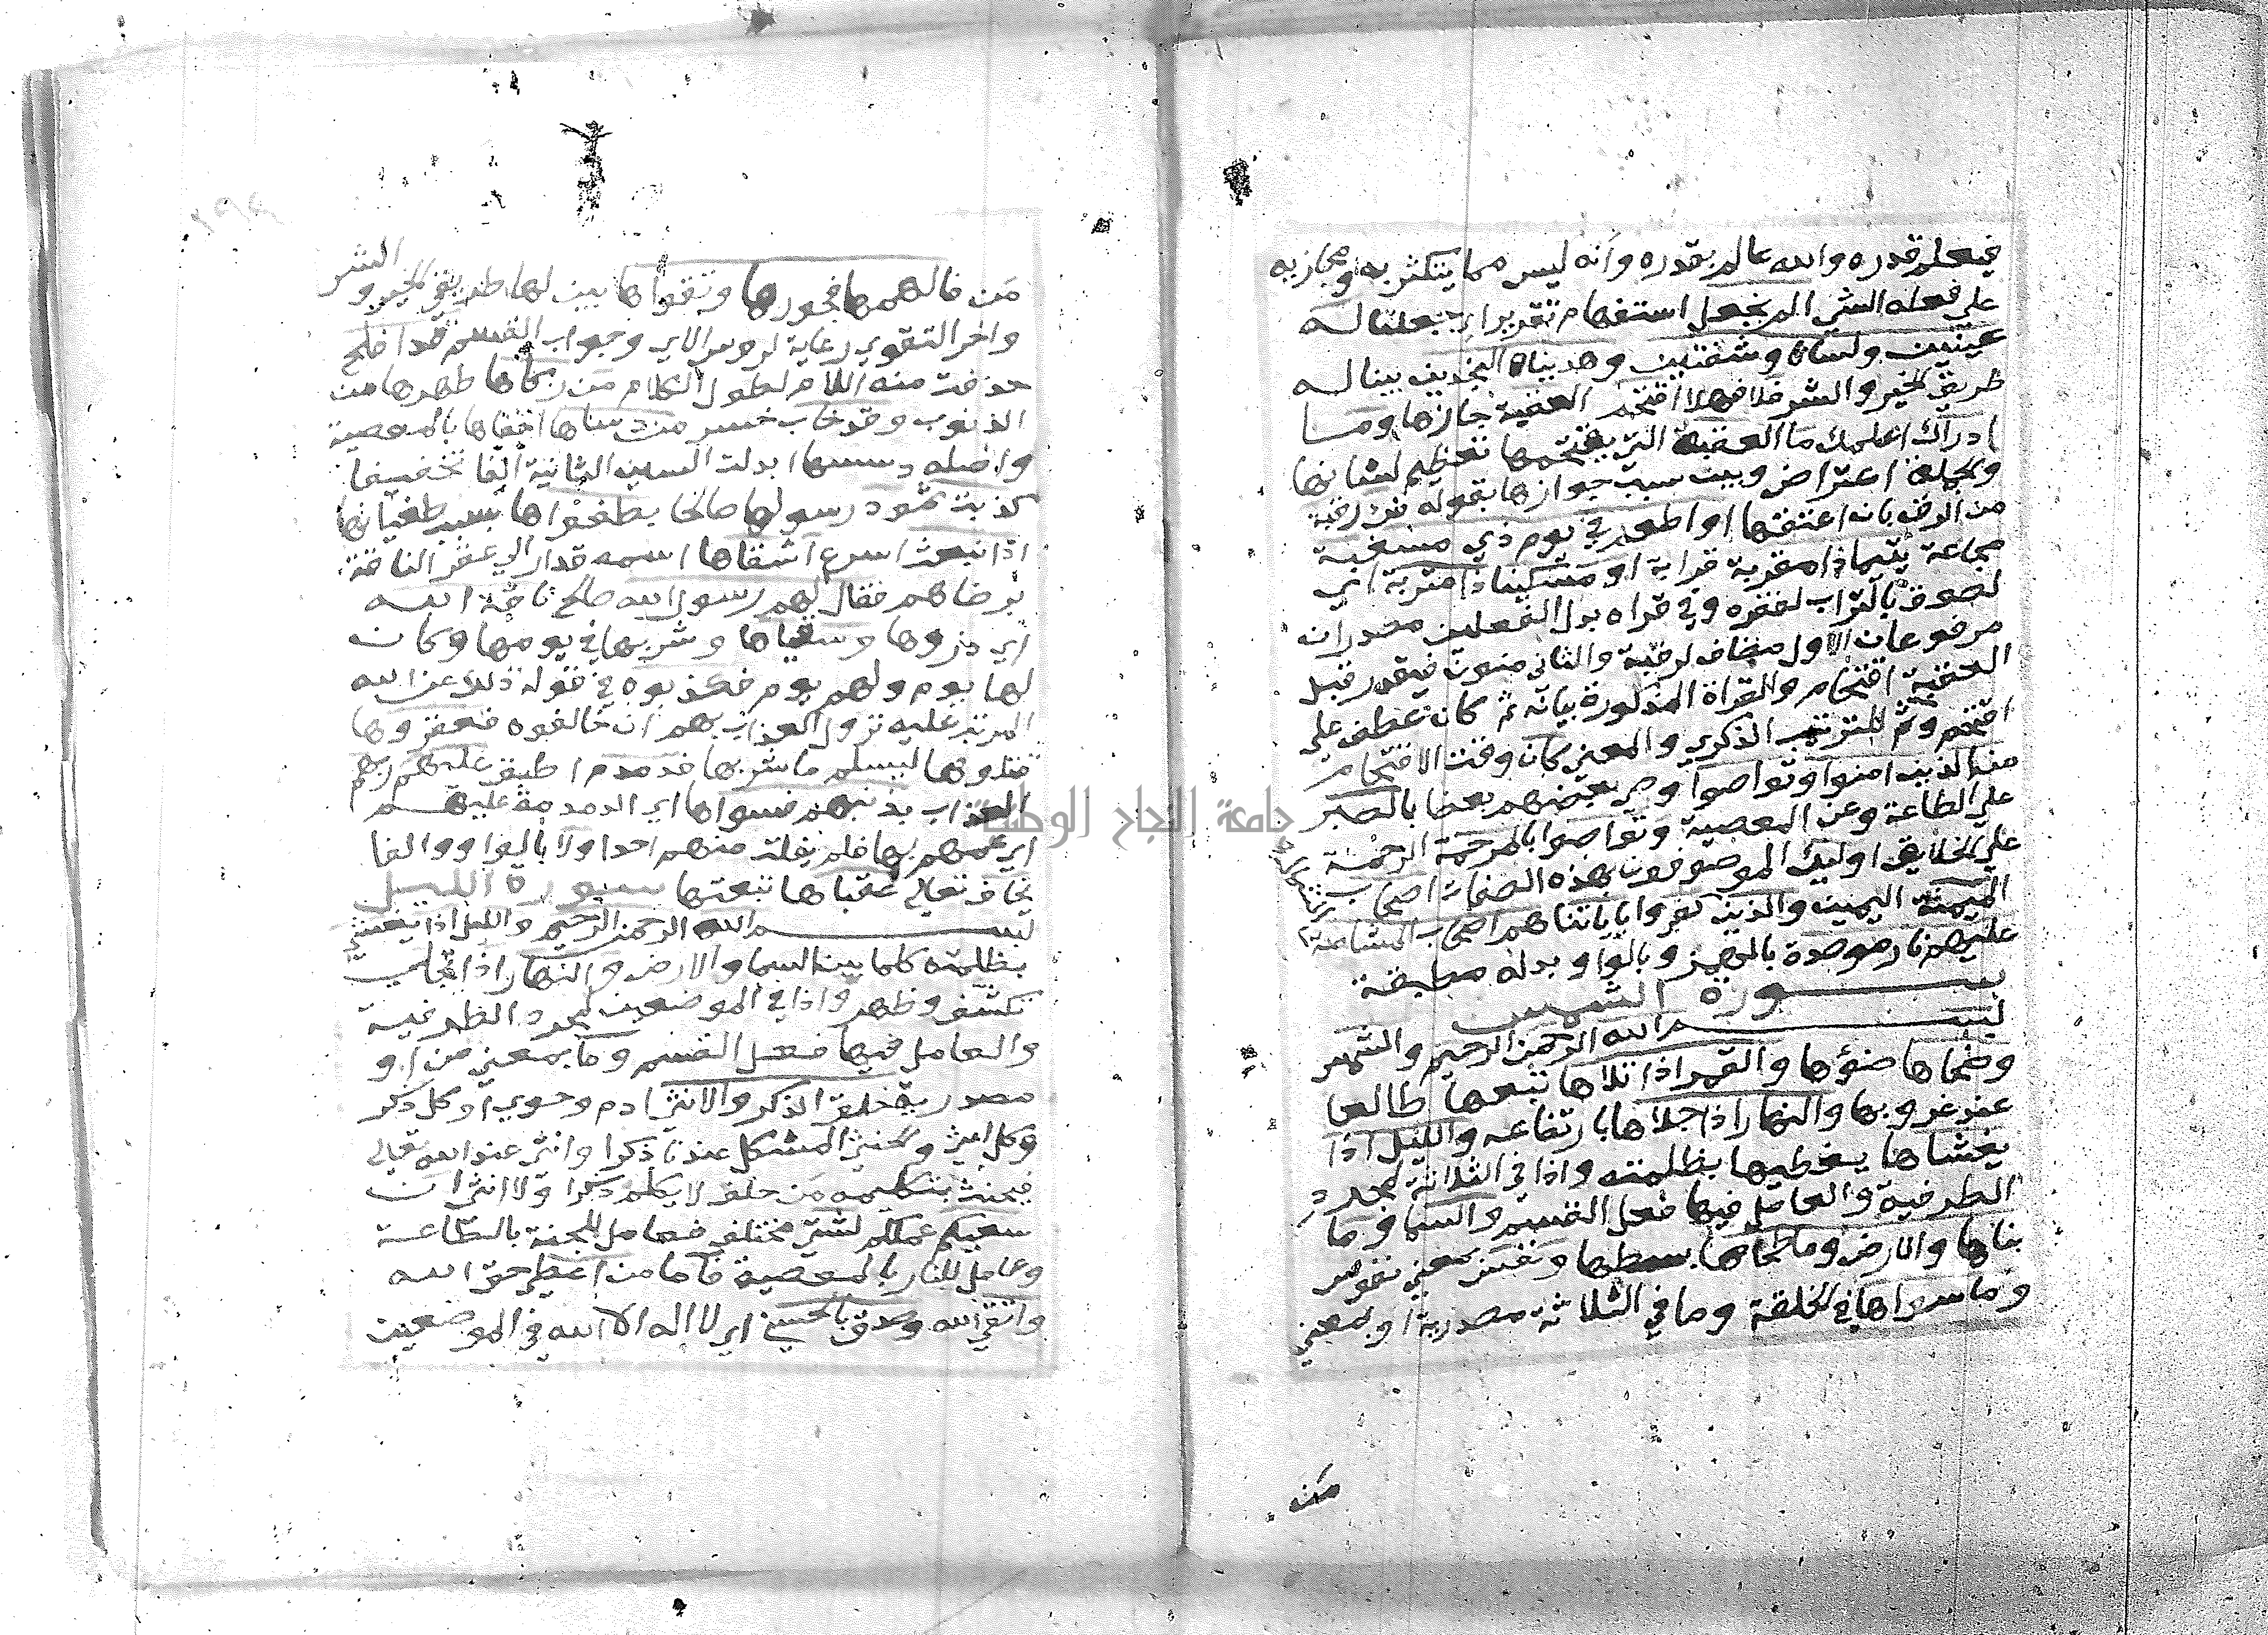 فيعلم قدره والله عالم بقدره وأنه ليس مما يتكثر به ومجازيه
على فعله السئ الم نجعل استفهام تقرير اي جعلنا له
عينين ولسانا وشفتين وهديناه النجدين بينا له
طريق الخير والشر فلا فهلا اقتحم العقبة جازها وما
ادراك اعلمك ما العقبة التي يقتحمها تعظيم لشانها
والجملة اعتراض وبين سبب جوازها بقوله فك رقبة
من الرق بان اعتقها او اطعم في يوم ذي مسغبة
مجاعة يتيما ذا مقربة قرابة او مسكينا ذا متربة اي
لصوق بالتراب لفقره وفي قراه بدل الفعلين مصدران
مرفوعان الاول مضاف لرقبة والثاني منون فيقدر قبل
العقبة اقتحام والقراة المذكورة بيانه ثم كان عطف على
اقتحم وثم للترتيب الذكري والمعنى كان وقت الاقتحام
من الذين امنوا وتواصوا وصى بعضهم بعضا بالصبر
على الطاعة وعن المعصية وتواصوا بالمرحمة الرحمة
على الخلايق اوليك الموصوفون بهذه الصفات اصحاب
الميمنة اليمين والذين كفروا باياتنا هم اصحاب المشامة
عليهم نار موصدة بالهمز وبالواو بدله مطبقة
سورة الشمس
بسم الله الرحمن الرحيم والشمس
وضحاها ضوءها والقمر اذا تلاها تبعها طالعا
عند غروبها والنهار اذا جلاها بارتفاعه والليل اذا
يغشاها يغطيها بظلمته واذا في الثلاثة لمجرد
الظرفية والعامل فيها فعل القسم والسما وما
بناها والارض وما طحاها بسطها ونفس بمعنى نفوس
وما سواها في الخلقة وما في الثلاثة مصدرية او بمعنى
من
من فالهمها فجورها وتقواها بين لها طريقي الخير و الشر
واخر التقوي رعاية لروس الاي وجواب القسم قد افلح
حذفت منه اللام لطول الكلام من زكاها طهرها من
الذنوب وقد خاب خسر من دساها اخفاها بالمعصية
واصله دسسها ابدلت السين الثانية الفا تخفيفا
كذبت ثمود رسولها صالحا بطغواها بسبب طغيانها
اذ انبعث اسرع اشقاها اسمه قدار الي عقر الناقة
برضاهم فقال لهم رسول الله صالح ناقة الله
اي ذروها وسقياها وشربها في يومها وكان
لها يوم ولهم يوم فكذبوه في قوله ذلك عن الله
المرتب عليه نزول العذاب بهم ان خالفوه فعقروها
قتلوها ليسلم ماشربها فدمدم اطبق عليهم ربهم
العذاب بذنبهم فسواها اي الدمدمة عليهم
اي عمهم بها فلم يفلت منهم احدا ولا بالواو والفا
يخاف تعالي عقباها تبعتها سورة الليل
بسم الله الرحمن الرحيم والليل اذا يغشي
بظلمته كلما بين السما والارض والنهار اذا تجلي
تكشف وظهر واذا في الموضعين لمجرد الظرفية
والعامل فيها فعل القسم وما بمعني من او
مصدرية خلق الذكر والانثي ادم وحوي او كل ذكر
وكل انثى والخنثي المشكل عندنا ذكرا وانثي عند الله تعالي
فيحنث بتكليمه من حلف لا يكلم ذكرا ولا انثي ان
سعيكم عملكم لشتي مختلف فعامل للجنة بالطاعة
وعامل للنار بالمعصية فاما من اعطي حق الله
واتقي الله وصدق بالحسني اي لا اله الا الله في الموضعين
جامعة النجاح الوطنية